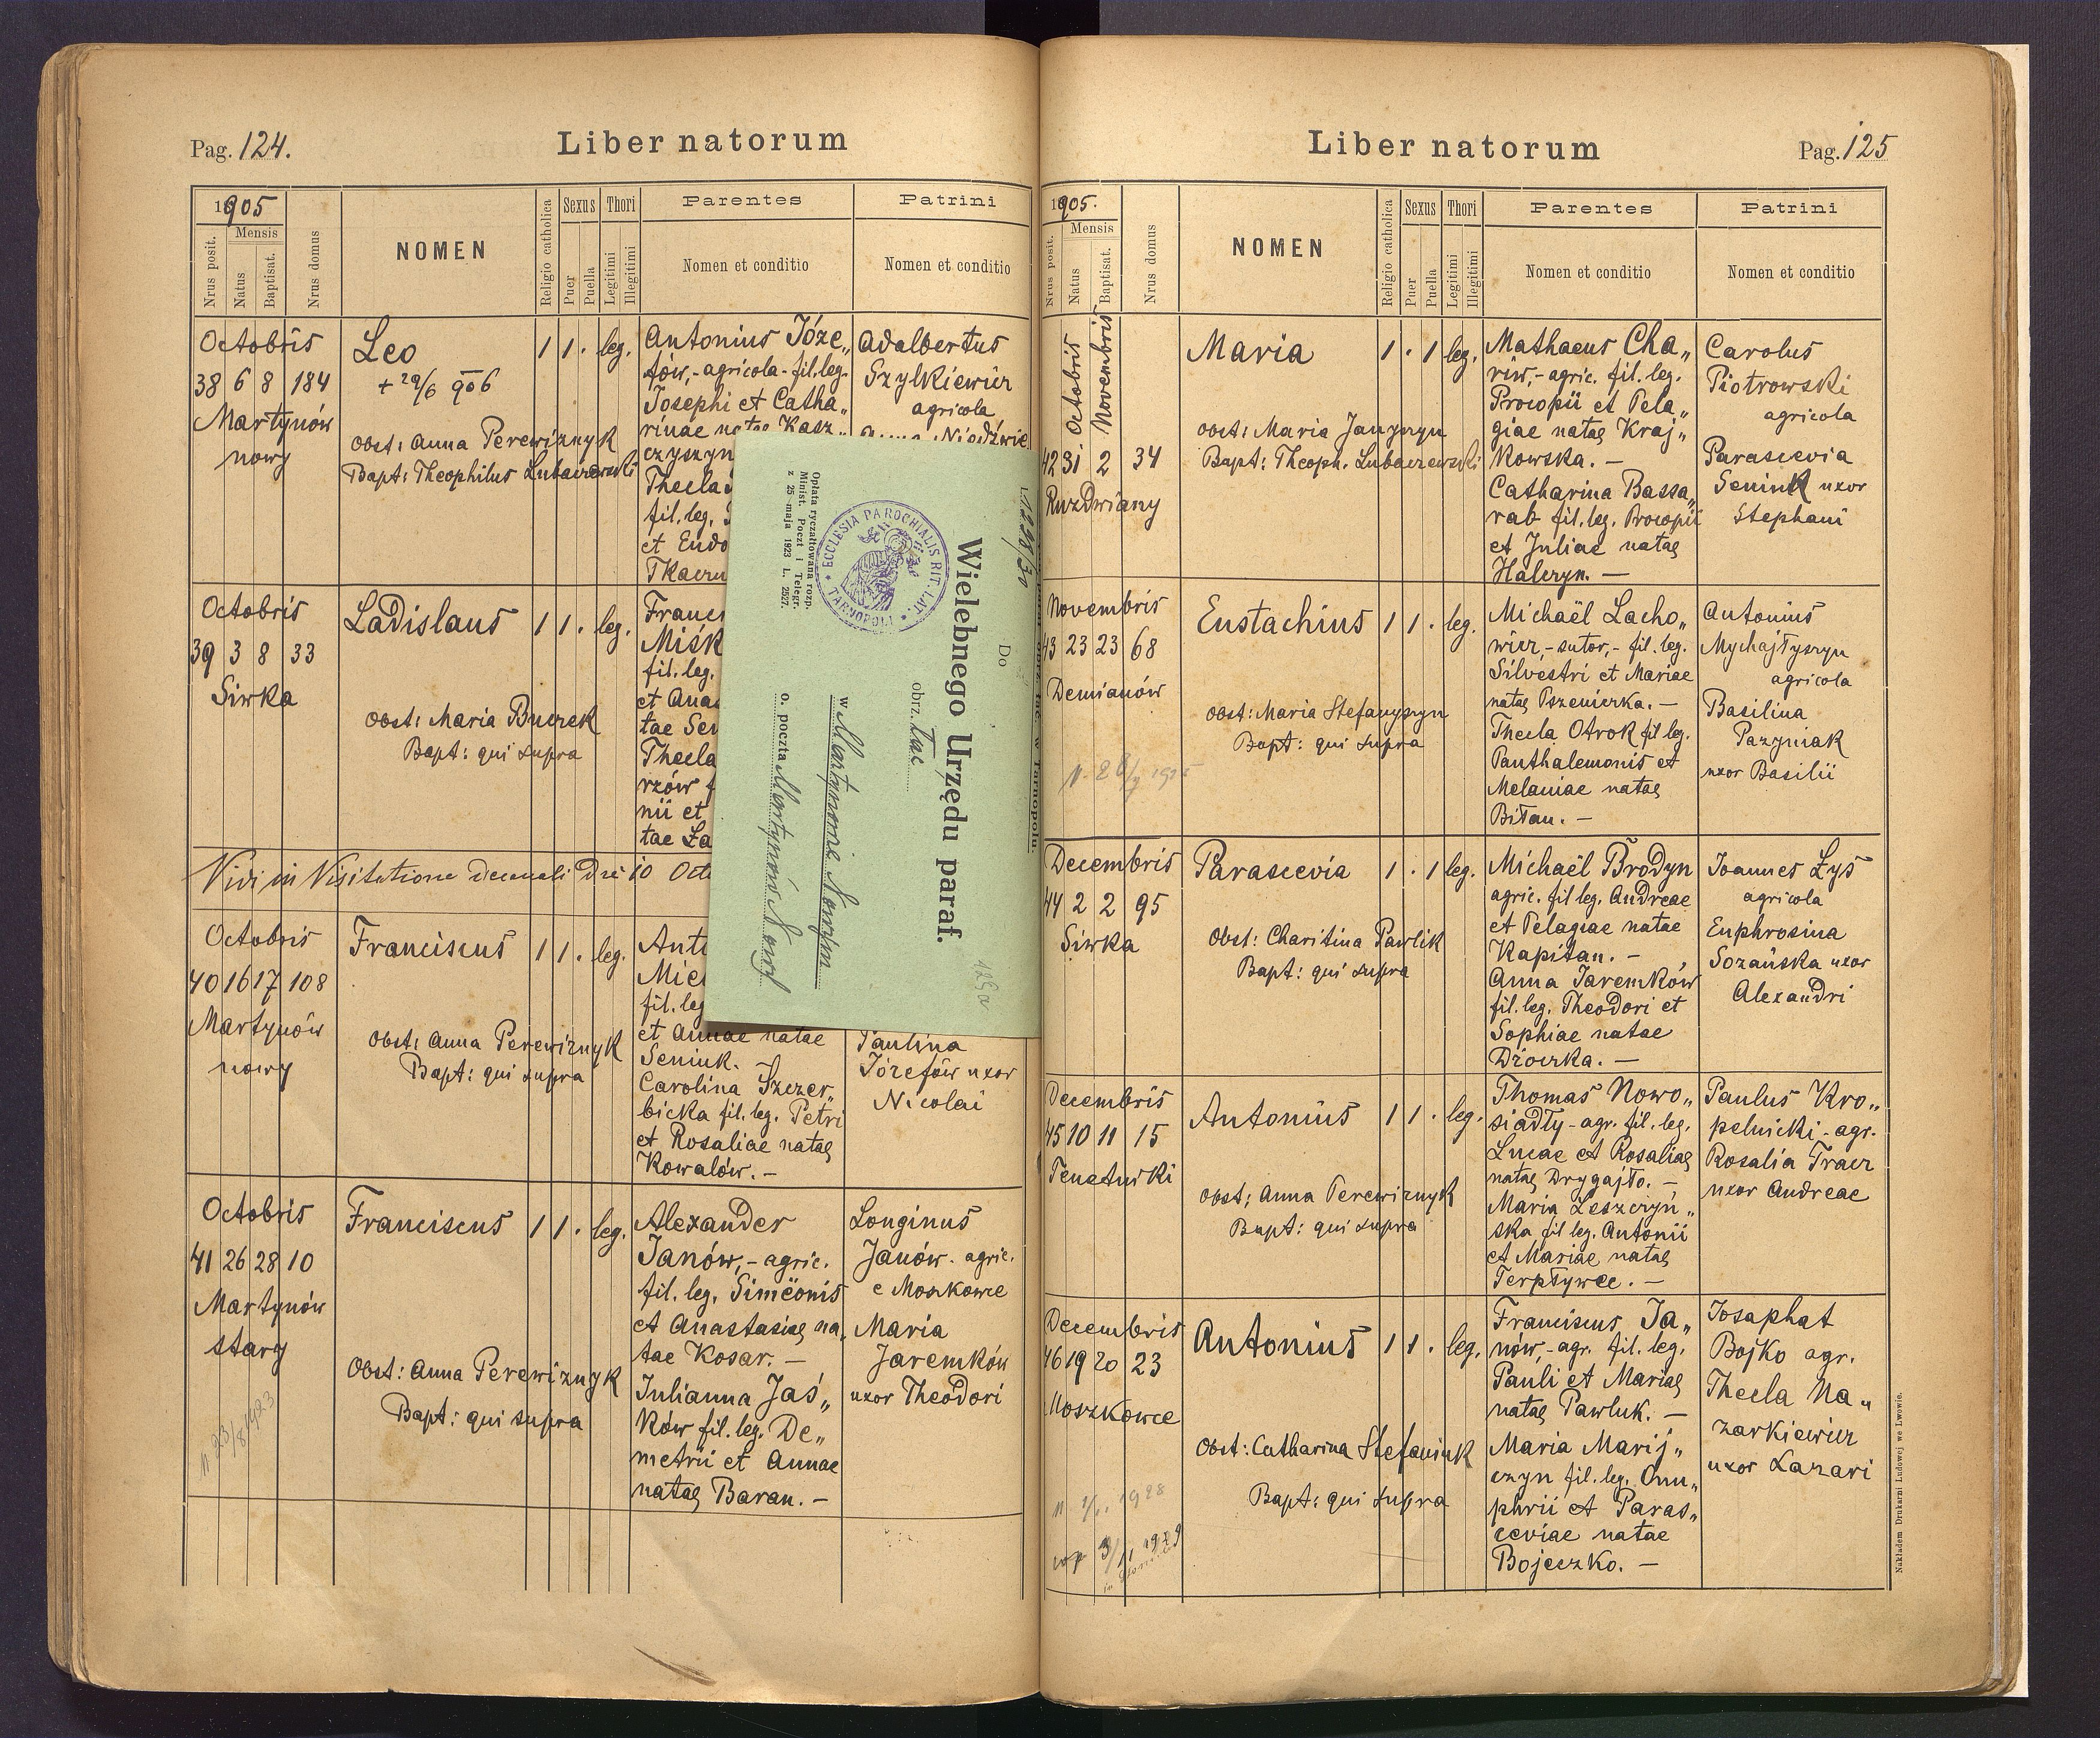 Pag. 124.
Liber natorum
1905
Nrus posit.
Mensis
Natus
Baptisat.
Nrus domus
NOMEN
Religio catholica
Sexus
Puer
Puella
Thori
Legitimi
Illegitimi
Parentes
Nomen et conditio
Patrini
Nomen et conditio
Octobris
38 6 8 184
Martynów
nowy
Leo
+ 29/6 906
obst: Anna Perewiznyk
Bapt: Theophilus Lubaczewski
1 1 . leg.
Antonius Józe„
fów,- agricola - fil. leg.
Josephi et Catha„
rinae natae Kasz„
czyszyn
Thecla
fil. leg.
et Eudo
Tkaczu
Adalbertus
Szylkiewicz
agricola
Anna Niedźwie
Octobris
39 3 8 33
Siwka
Ladislaus
obst: Maria Burek
Bapt: qui supra
1 1 . leg.
Franc
Miśk
fil. leg.
et Anas
tae Sen
Thecla
rzów f
nii et
tae Ła
Vidi in Visitatione decanali die 10 Octo
Octobris
40 16 17 108
Martynów
nowy
Franciscus
obst: Anna Perewiznyk
Bapt: qui supra
1 1 . leg.
Anto
Mic
fil. leg
et Annae natae
Seniuk.
Carolina Szczer„
bicka fil. leg. Petri
et Rosaliae natae
Kowalów. -
Paulina
Józefów uxor
Nicolai
Octobris
41 26 28 10
Martynów
stary
Franciscus
Obst: Anna Perewiznyk
Bapt: qui supra
1 1 . leg.
Alexander
Janów,- agric.
fil. leg. Simeonis
et Anastasiae na„
tae Kosar. -
Julianna Jaś„
ków fil. leg. De„
metrii et Annae
natae Baran. -
Longinus
Janów - agric.
e Moszkowce
Maria
Jaremków
uxor Theodori
11 23/8 1923
w Tarnopolu.
Do
Wielebnego Urzędu paraf.
obrz. łac.
w Martynowie Nowym
o. poczta Martynów Nowy
Opłata ryczałtowana rozp.
Minist. Poczt i Telegr.
z 25 maja 1923 L. 2527.
ECCLESIA PAROCHIALIS RIT. LAT. TARNOPOLI
Pag. 125
Liber natorum
1905.
Nrus posit.
Mensis
Natus
Baptisat.
Nrus domus
NOMEN
Religio catholica
Sexus
Puer
Puella
Thori
Legitimi
Illegitimi
Parentes
Nomen et conditio
Patrini
Nomen et conditio
Octobris
Novembris
42 31 2 34
Ruzdwiany
Maria
obst: Maria Janyszyn
Bapt: Theoph. Lubaczewski
1 . 1 leg.
Mathaeus Cha„
riw,- agric. fil. leg.
Procopii et Pela„
giae natae Kraj„
kowska. -
Catharina Bassa„
rab fil. leg. Procopii
et Juliae natae
Halczyn. -
Carolus
Piotrowski
agricola
Parascevia
Seniuk uxor
Stephani
Novembris
43 23 23 68
Demianów
Eustachius
obst: Maria Stefanyszyn
Bapt: qui supra
1 1 . leg.
Michaël Lacho„
wicz,- sutor,- fil. leg.
Silvestri et Mariae
natae Pszenierka. -
Thecla Otrok fil leg.
Panthalemonis et
Melaniae natae
Biłan. -
Antonius
Mychajłyszyn
agricola
Basilina
Pazyniak
uxor Basilii
Decembris
44 2 2 95
Siwka
Parascevia
Obst: Charitina Pawlik
Bapt: qui supra
1 . 1 leg.
Michaël Brodyn
agric. fil leg. Andreae
et Pelagiae natae
Kapitan. -
Anna Jaremków
fil. leg. Theodori et
Sophiae natae
Dżoczka. -
Joannes Łys
agricola
Euphrosina
Sozańska uxor
Alexandri
Decembris
45 10 11 15
Tenetniki
Antonius
obst; Anna Perewiznyk
Bapt: qui supra
1 1 . leg.
Thomas Nowo„
siadły - agr. fil. leg.
Lucae et Rosaliae
natae Drygajło. -
Maria Leszczyń„
ska fil leg. Antonii
et Mariae natae
Terpływce. -
Paulus Kro„
pelnicki - agr.
Rosalia Tracz
uxor Andreae
Decembris
46 19 20 23
Moszkowce
Antonius
Obst: Catharina Stefaniuk
Bapt: qui supra
1 1 . leg.
Franciscus Ja„
nów,- agr. fil. leg.
Pauli et Mariae
natae Pawluk. -
Maria Marij„
czyn fil. leg. Onu„
phrii et Paras„
ceviae natae
Bojeczko. -
Josaphat
Bojko agr.
Thecla Na„
zarkiewicz
uxor Lazari
Nakładem Drukarni Ludowej we Lwowie.